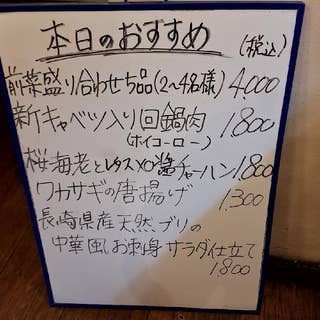 本日のおすすめ
(税込)
前菜盛り合わせ5品(2〜4名様) 4,000
新キャベツ入り回鍋肉 1800
(ホイコーロー)
桜海老とレタスXO醬チャーハン 1,800
ワカサギの唐揚げ 1,300
長崎県産天然ブリの
中華風お刺身 サラダ仕立て
1,800